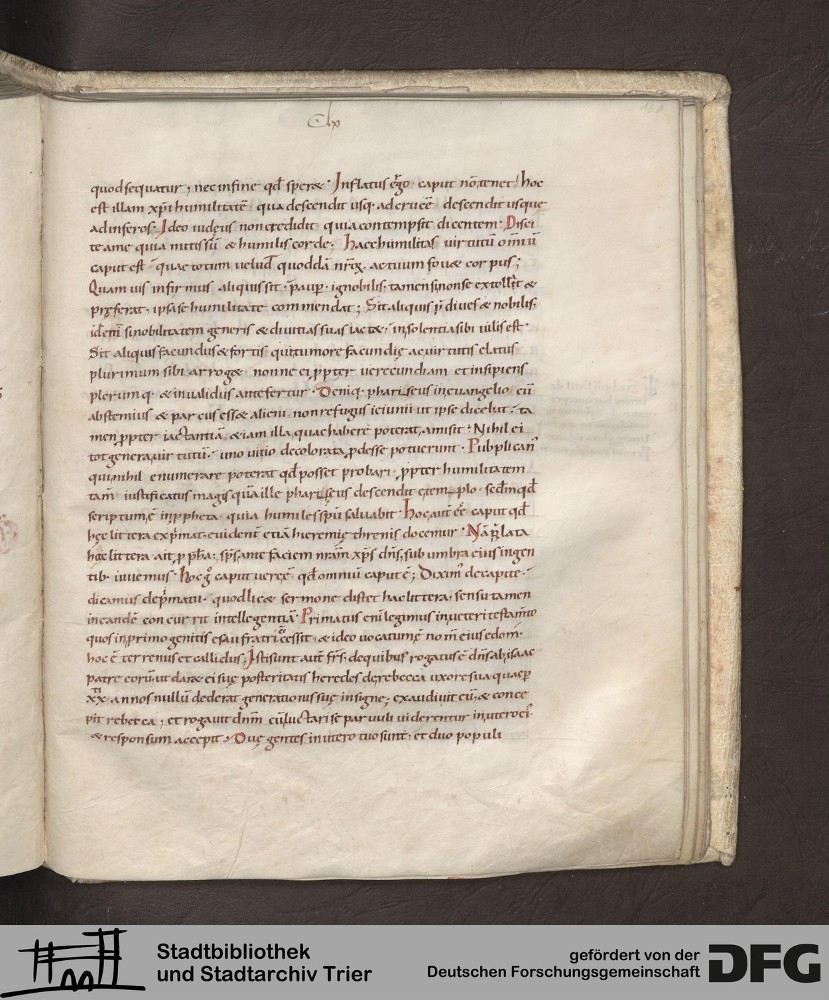 Clxv
quod sequatur, nec in fine qđ speret. Inflatus ḡo caput nō tenet. hoc
est illam xp̄i humilitatē qua descendit usq. ad crucē descendit usque
ad inferos. Ideo iudęus non credidit quia contempsit dicentem. Disci
te a me quia mitis sū & humilis corde. Haec humilitas uirtutū omīū
caput est. quae totum uelud quoddā nr̄ix. ac tuum fouet corpus;
Quamuis infirmus aliquis sit. paup. ignobilis. tamen si non se extollit &
pręferat. ipsa se humilitate commendat; Sit aliquis p̄ diues & nobilis.
idem si nobilitatem generis & diuitias suas iactet. insolentia sibi uilis est.
Sit aliquis facundus & fortis qui tumore facundię ac uirtutis elatus
plurimum sibi arroget. nonne ei ppter uerecundiam et insipiens
plerumq. & inualidus antefertur. Deniq. phariseus in euangelio cū
abstemius & parcus esset alieni. non refugus ieiunii ut ipse dicebat. ta
men ppter iactantiā etiam illa quae habere poterat amisit. Nihil ei
tot genera uirtutū. uno uitio decolorata pdesse potuerunt. Pubplican'
qui nihil enumerare poterat qđ posset probari. ppter humilitatem
tam iustificatus magis quā ille phariseus descendit de templo. secdm qđ
scriptum ē in ppheta. quia humiles spū saluabit. Hoc aut eē caput qđ
hęc littera exp̄mat. euident etiā hieremię threnis docemur. Nā p̄lata
hęc littera ait ppha. sps ante faciem nrām xp̄s dn̄s. sub umbra eius in gen
tib. uiuemus. hoc ḡ caput uerę ē qđ omniū caput ē; Diximꝰ de capite.
dicamus de p̄matu. quod licet sermone distet haec littera. sensu tamen
in eandē concurrit intellegentiā. Primatus enī legimus in ueteri testam̄to
quos in primogenitis esau fratri cessit. & ideo uocatum ē nom̄ eius edom.
hoc ē terrenus et callidus. Isti sunt aut̄ fr̄s. de quibus rogatus ē dn̄s ab isaac
patre eorū. ut daret ei suę posteritatis heredes de rebecca uxore sua quae p
xx. annos nullū dederat generationis suę insigne. exaudiuit eū. & conce
pit rebecca, et rogauit dnm̄ cū luctari se paruuli uiderentur in utero ei.
& responsum accepit. Duę gentes in utero tuo sunt. et duo populi
Stadtbibliothek
und Stadtarchiv Trier
gefördert von der
Deutschen Forschungsgemeinschaft
DFG